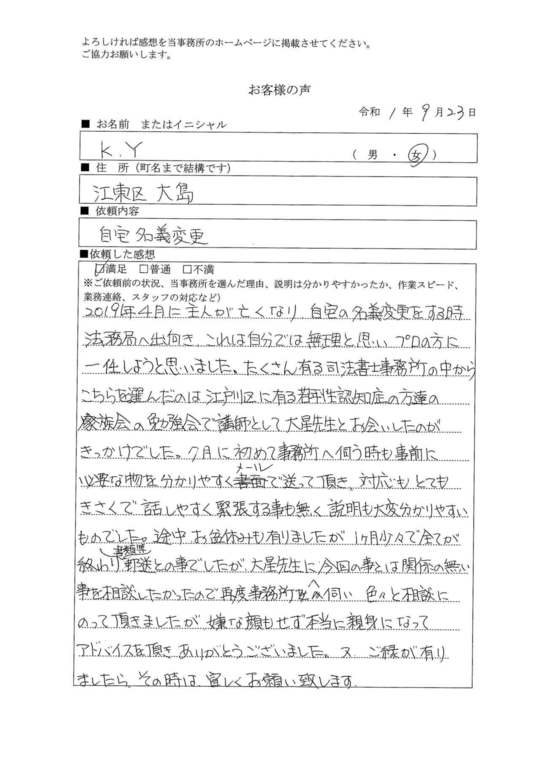 よろしければ感想を当事務所のホームページに掲載させてください。
ご協力お願いします。
お客様の声
令和 1 年 9 月 23 日
■ お名前 またはイニシャル
K.Y ( 男 ・ 女 )
■ 住 所（町名まで結構です）
江東区 大島
■ 依頼内容
自宅 名義変更
■依頼した感想
☑満足 □普通 □不満
※ご依頼前の状況、当事務所を選んだ理由、説明は分かりやすかったか、作業スピード、
業務連絡、スタッフの対応など）
2019年4月に主人が亡くなり 自宅の名義変更をする時
法務局へ出向き、これは自分では無理と思い プロの方に
一任しようと思いました。たくさん有る司法書士事務所の中から
こちらを選んだのは江戸川区に有る若年性認知症の方達の
家族会の勉強会で講師として大星先生とお会いしたのが
きっかけでした。7月に初めて事務所へ伺う時も事前に
必要な物を分かりやすくメールで送って頂き、対応も とても
きさくで話しやすく緊張する事も無く 説明も大変分かりやすい
ものでした。途中 お盆休みも有りましたが 1ヶ月少々で全てが
終わり 書類等郵送との事でしたが、大星先生に今回の事とは関係の無い
事を相談したかったので再度事務所へ伺い 色々と相談に
のって頂きましたが 嫌な顔もせず本当に親身になって
アドバイスを頂き ありがとうございました。又 ご縁が有り
ましたら、その時は 宜しくお願い致します